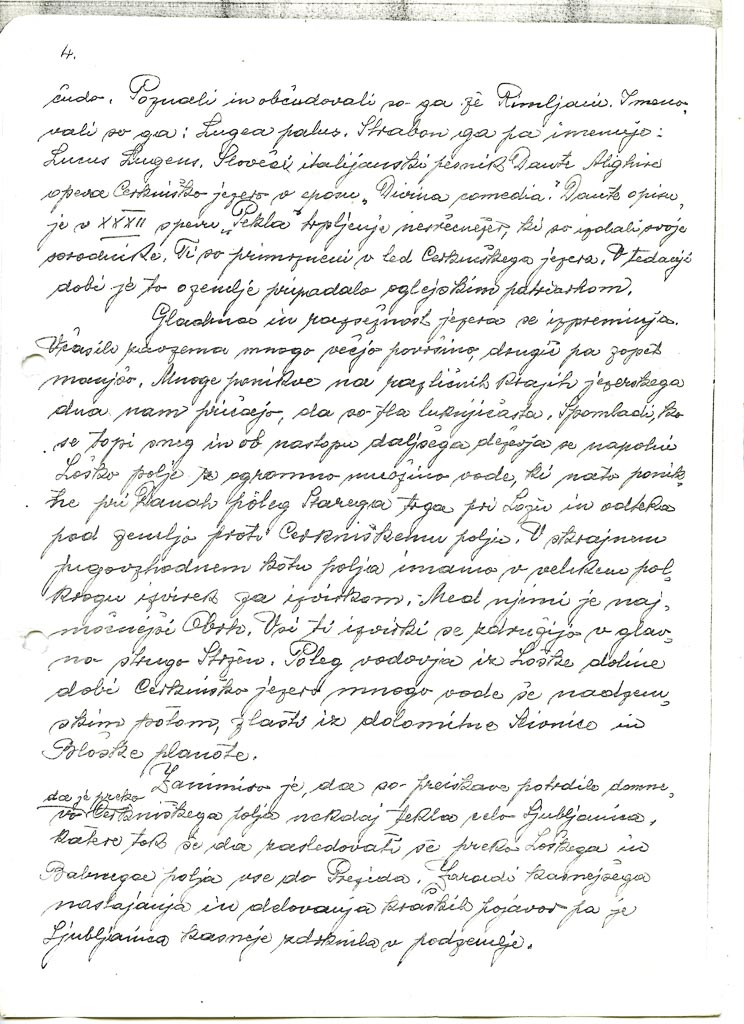 4.
čudo. Poznali in občudovali so ga že Rimljani. Imeno-
vali so ga: Lugea palus. Strabon ga pa imenuje:
Lucus Lugens. Sloveči italijanski pesnik Dante Alighire
opeva Cerkniško jezero v eposu „Divina comedia". Dante opisu-
je v XXXII spevu „Pekla" trpljenje nesrečnežev, ki so izdali svoje
sorodnike. Ti so primrznjeni v led Cerkniškega jezera. V tedanji
dobi je to ozemlje pripadalo oglejskim patriarkom.
Gladina in razsežnost jezera se izpreminja.
Včasih zavzema mnogo večjo površino, drugič pa zopet
manjšo. Mnoge ponikve na različnih krajih jezerskega
dna nam pričajo, da so tla luknjičasta. Spomladi, ko
se topi sneg in ob nastopu daljšega deževja se napolni
Loško polje z ogromno množino vode, ki nato ponik-
ne pri Danah poleg Starega trga pri Ložu in odteka
pod zemljo proti Cerkniškemu polju. V skrajnem
jugovzhodnem kotu polja imamo v velikem pol-
krogu izvirek za izvirkom. Med njimi je naj-
močnejši Obrh. Vsi ti izvirki se združijo v glav-
no strugo Stržen. Poleg vodovja iz Loške doline
dobi Cerkniško jezero mnogo vode še nadzem-
skim potom, zlasti iz dolomitne Slivnice in
Bloške planote.
Zanimivo je, da so preiskave potrdile domne-
vo da je preko Cerkniškega polja nekdaj tekla vsa Ljubljanica,
katere tok se da zasledovati še preko Loškega in
Babnega polja vse do Prezida. Zaradi kasnejšega
nastajanja in delovanja kraških pojavov pa je
Ljubljanica kasneje zdrknila v podzemlje.